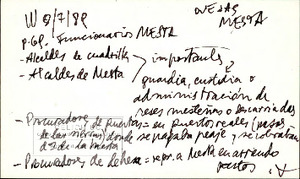 W 9/7/89
OVEJAS
MESTA
p. 68. Funcionarios MESTA
- Alcaldes de cuadrilla
- Alcaldes de Mesta
importante
guardia, custodia o
administración de
reses mesteñas o descarriadas
- Procuradores de puertos = en puertos reales (pasos
de las sierras) donde se pagaba peaje y se cobraban
dºs de la mesta
- Procuradores de dehesa = repr. a Mesta en arriendo
pastos